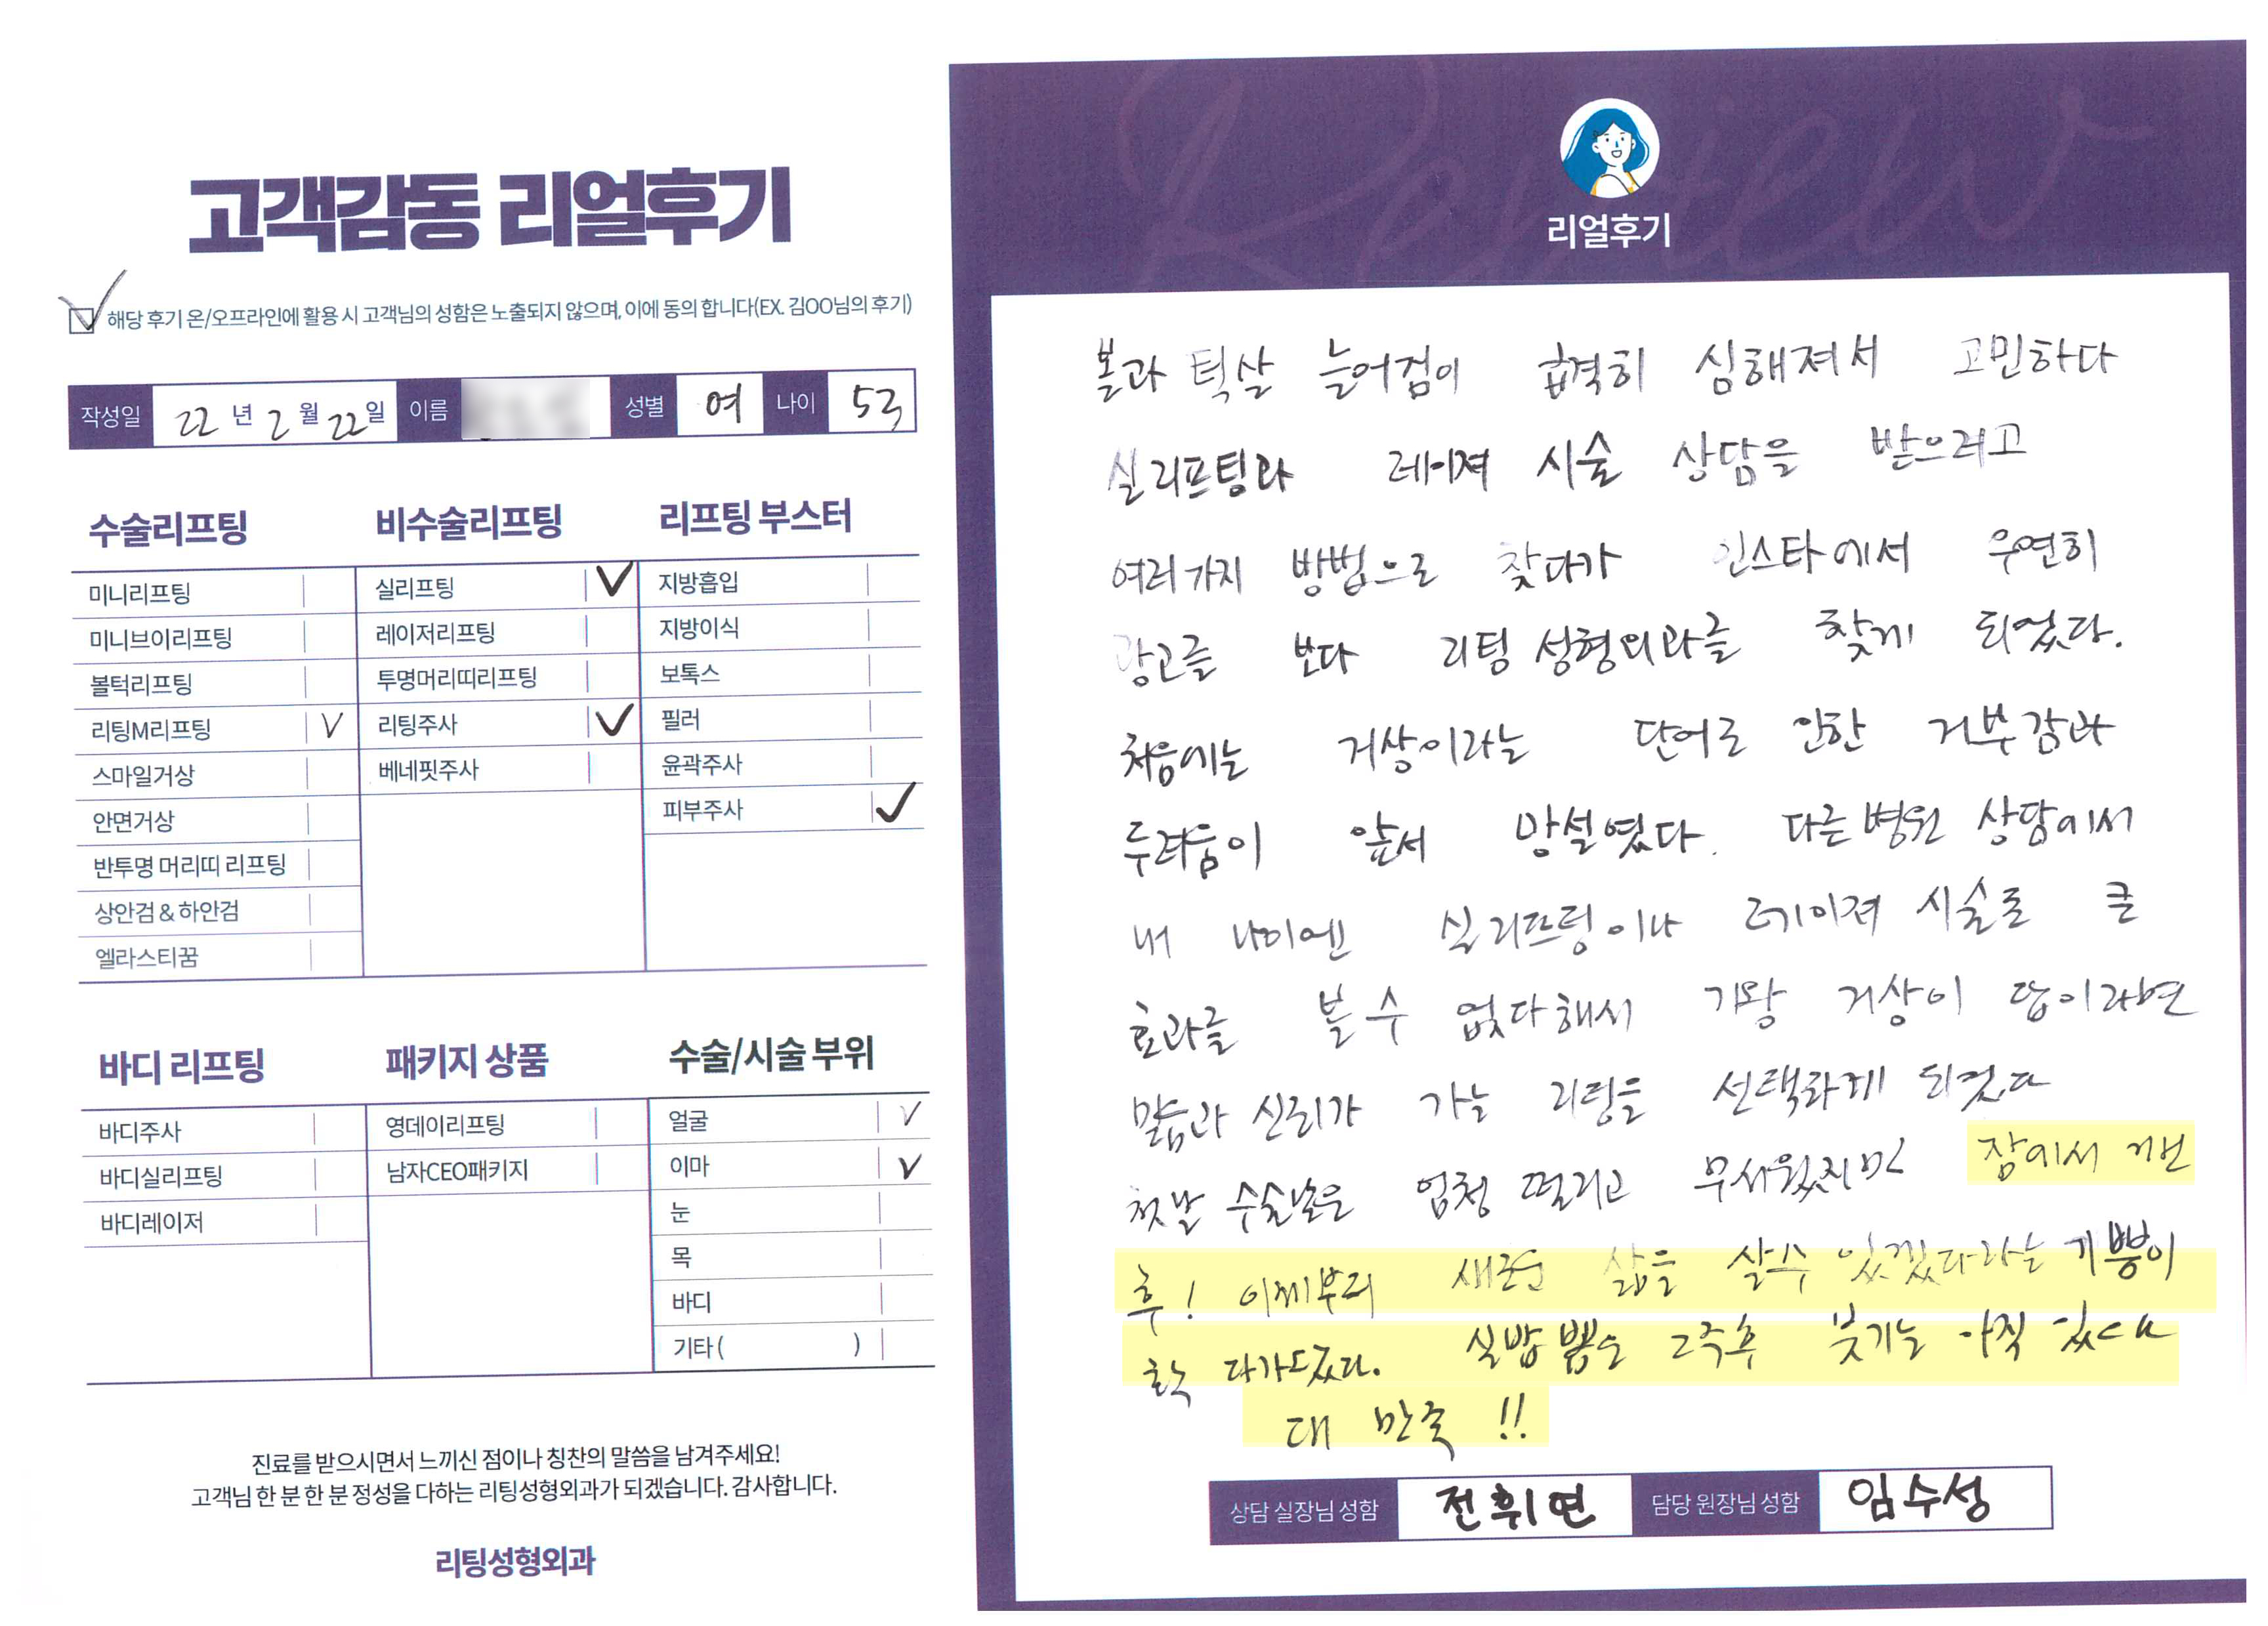 고객감동 리얼후기
해당 후기 온/오프라인에 활용 시 고객님의 성함은 노출되지 않으며, 이에 동의 합니다(EX. 김OO님의 후기)
작성일 22 년 2 월 22 일 이름 성별 여 나이 53
수술리프팅
미니리프팅
미니브이리프팅
볼턱리프팅
리팅M리프팅 V
스마일거상
안면거상
반투명 머리띠 리프팅
상안검 & 하안검
엘라스티꿈
비수술리프팅
실리프팅 V
레이저리프팅
투명머리띠리프팅
리팅주사 V
베네핏주사
리프팅 부스터
지방흡입
지방이식
보톡스
필러
윤곽주사
피부주사 V
바디 리프팅
바디주사
바디실리프팅
바디레이저
패키지 상품
영데이리프팅
남자CEO패키지
수술/시술 부위
얼굴 V
이마 V
눈
목
바디
기타 ( )
진료를 받으시면서 느끼신 점이나 칭찬의 말씀을 남겨주세요!
고객님 한 분 한 분 정성을 다하는 리팅성형외과가 되겠습니다. 감사합니다.
리팅성형외과
Review
리얼후기
볼과 턱살 늘어짐이 급격히 심해져서 고민하다
실리프팅과 레이져 시술 상담을 받으려고
여러가지 방법으로 찾다가 인스타에서 우연히
광고를 보다 리팅 성형외과를 찾게 되었다.
처음에는 거상이라는 단어로 인한 거부감과
두려움이 앞서 망설였다. 다른병원 상담에서
내 나이엔 실리프팅이나 레이져 시술로 큰
효과를 볼 수 없다해서 기왕 거상이 답이라면
믿음과 신뢰가 가는 리팅을 선택하게 되었다
첫날 수술날은 엄청 떨리고 무서웠지만 잠에서 깨넌
후! 이제부터 새로운 삶을 살수 있겠다라는 기쁨이
확 다가도왔다. 실밥뽑은 2주후 붓기는 아직 있으나
대 만족 !!
상담 실장님 성함 전휘연 담당 원장님 성함 임수성